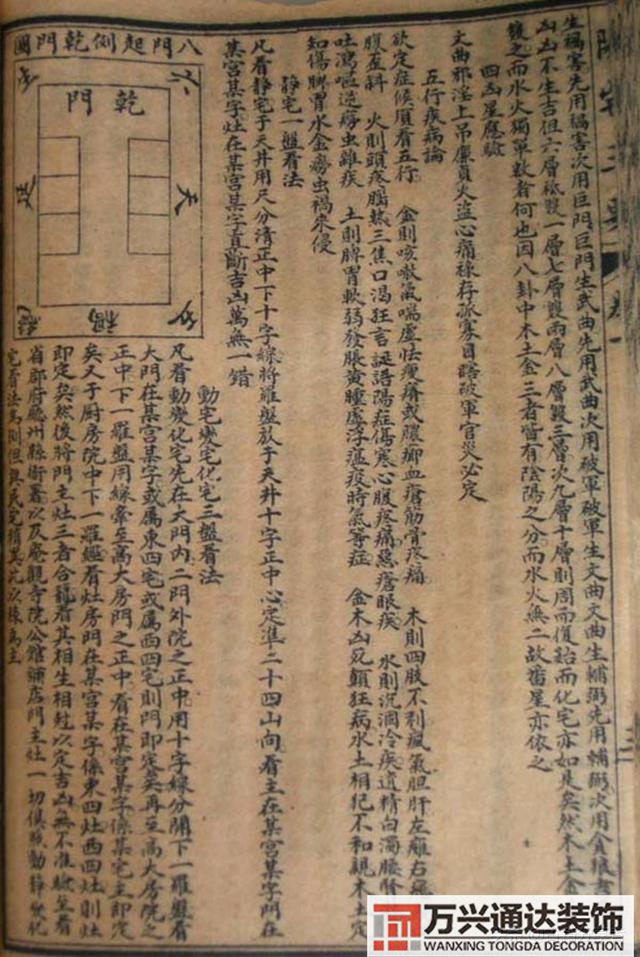 陽宅三要 卷一
生禍害先用禍害次用巨門巨門生武曲先用武曲次用破軍破軍生文曲文曲生輔弼先用輔弼次用貪狼
凶凶不生吉但六層祗製一層七層製兩層八層製三層次九層十層則周而復始而化宅亦如是矣然木土金
一
篗之而水火獨單數者何也因八卦中木土金三者皆有陰陽之分而水火無二故番星亦依之
四凶星應驗
文曲邪淫上吊廉貞火盜心痛祿存孤寡目瞎破軍官災必定
五行疾病論
欲定症候順看五行 金則咳嗽氣喘虛怯瘦瘠或膿瘷血瘡筋骨疼痛 木則四肢不利瘋氣胆肝左癱右
腹蛊斜 火則頭疼腦熱三焦口渴狂言誔語陽症傷寒心腹疼痛惡瘡眼疾 水則沉涸冷疾遺精白濁腰腎
吐瀉嘔逆癆虫雜疾 土則脾胃軟弱發脹黃腫虛浮瘟疫時氣等症 金木凶死顛狂病水土相犯不和親木土定
知傷脾胃水金癆虫禍來侵
靜宅一盤看法
凡看靜宅于天井用尺分清正中下十字線將羅盤放于天井十字正中心定準二十四山向看主在某宮某字門在
某宮某字灶在某宮某字直斷吉凶萬無一錯
動宅變宅化宅三盤看法
凡看動變化宅先在大門內二門外院之正中用十字線分開下一羅盤看
大門在某宮某字或属東四宅或属西四宅則門即定矣再至高大房院之
正中下一羅盤用線牽至高大房門之正中看在某宮某字係某宅主即定
矣又于厨房院中下一羅經看灶房門在某宮某字係東四灶西四灶則灶
即定矣然後將門主灶三者合籠看其相生相尅以定吉凶無不准驗至看
省郡府廳州縣衙署以及庵觀寺院公舘舖店門主灶一切俱照動靜變化
宅看法為例但與民宅
八門起例乾門圖
乾門
六
天
五
禍
絕
延
生
万兴通达装饰
WANXING TONGDA DECORATION